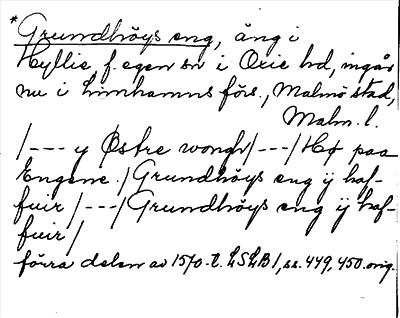 *Grundhöys eng, äng i
Hyllie f. egen sn i Oxie hd, ingår
nu i Limhamns förs., Malmö stad,
Malm. l.
/--- y Østre wongh/---/Hø paa
Engene./Grundhöys eng ÿ haf-
fuir/---/Grundhöys eng ÿ haf-
fuir/
förra delen av 1570-t. LSLB 1, ss. 449, 450. orig.